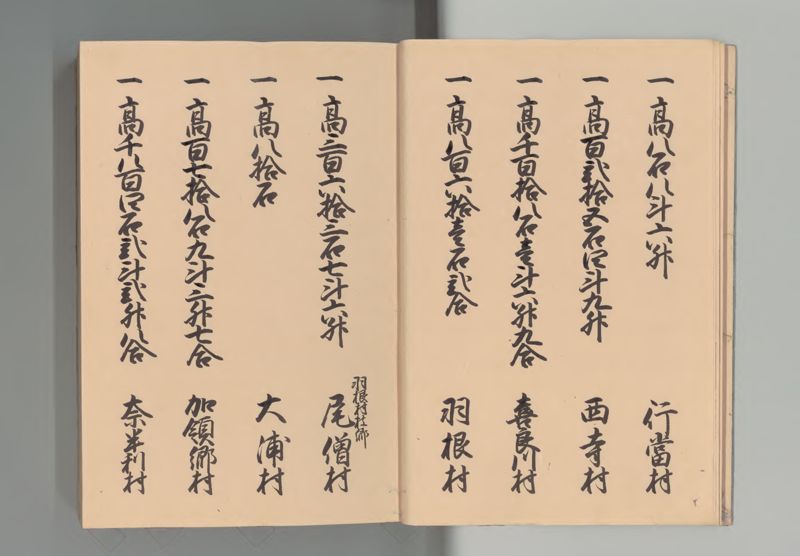 一高八石八斗六升 行當村
一高百弐拾五石四斗九升 西寺村
一高千百拾八石壹斗六升九合 喜良川村
一高八百六拾壹石弐合 羽根村
一高三百六拾三石七斗六升 羽根村枝郷 尾僧村
一高八拾石 大浦村
一高百七拾八石九斗三升七合 加領郷村
一高千八百四石弐斗弐升八合 奈半利村